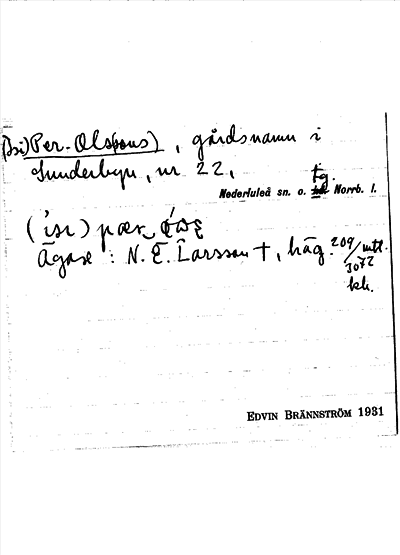 (Isi) Per-Ols(sons), gårdsnamn i
Sunderbyn, nr 22,
tg.
Nederluleå sn. o. Norrb. l.
Ägare: N. E. Larsson †, häg. 209/3072 mtl.
kh.
EDVIN BRÄNNSTRÖM 1931